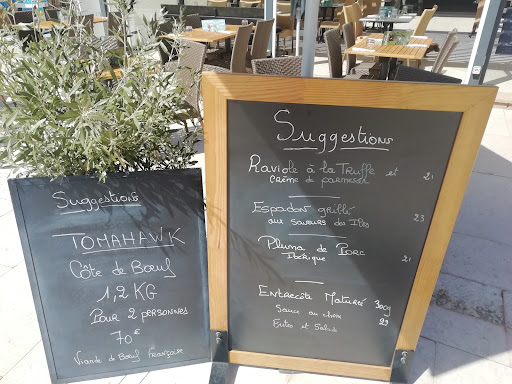 Suggestions
TOMAHAWK
Côte de Bœuf
1,2 KG
Pour 2 personnes
70€
Viande de Bœuf Française
Suggestions
Raviole à la Truffe et
crème de parmesan 21
Espadon grillé
aux saveurs des Iles 23
Pluma de Porc
Ibérique 21
Entrecôte Maturée 300g
Sauce au choix 29
Frites et Salade